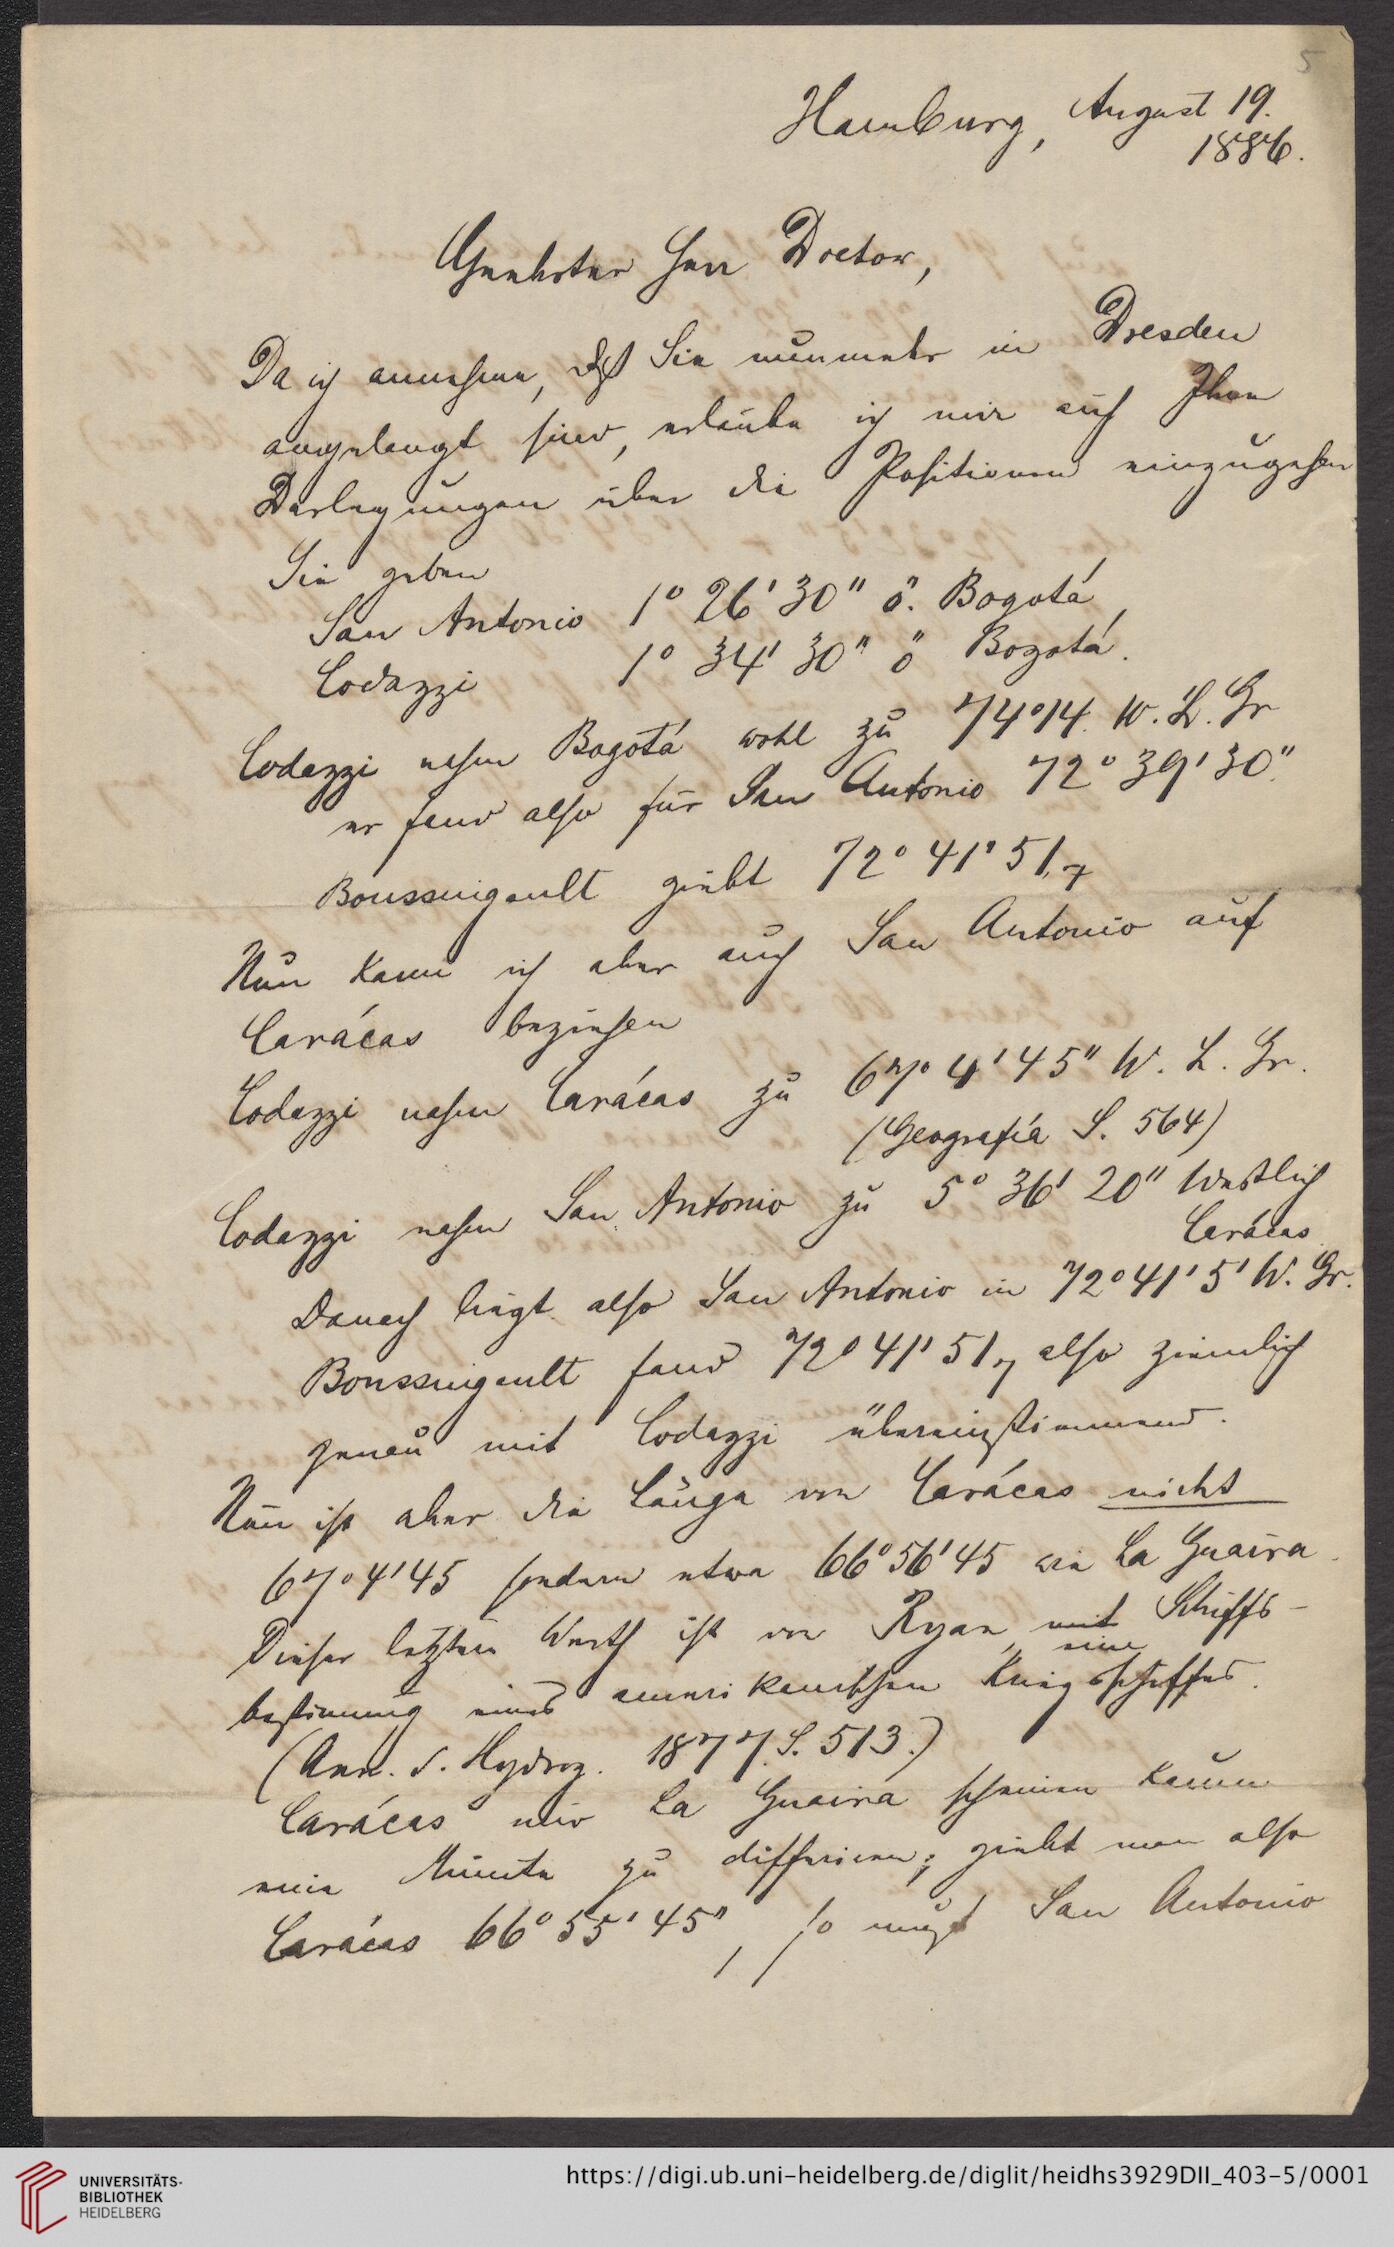 5
Hamburg, August 19.
1886.
Geehrter Herr Doctor,
Da ich annehme, daß Sie nunmehr in Dresden
angelangt sind, erlaube ich mir auf Ihre
Darlegungen über die Positionen einzugehen
Sie geben
San Antonio 1° 26' 30" ö. Bogotá,
Codazzi 1° 34' 30" ö Bogotá.
Codazzi nahm Bogotá wohl zu 74°14 W. L. Gr
er fand also für San Antonio 72° 39' 30".
Boussingault giebt 72° 41' 51,7
Nun kann ich aber auch San Antonio auf
Carácas beziehen
Codazzi nahm Carácas zu 67° 4' 45" W. L. Gr.
(Geografía S. 564)
Codazzi nahm San Antonio zu 5° 36' 20" Westlich
Carácas
Danach liegt also San Antonio in 72° 41' 5' W. Gr.
Boussingault fand 72° 41' 51,7 also ziemlich
genau mit Codazzi übereinstimmend.
Nun ist aber die Länge von Carácas nicht
67° 4' 45 sondern etwa 66° 56' 45 wie La Guaira.
Dieser letztere Werth ist von Ryan, mit eine Schiffs-
bestimmung eines amerikanischen Kriegsschiffes.
(Ann. d. Hydrog. 1877. S. 513.)
Carácas und La Guaira scheinen kaum
eine Minute zu differieren; giebt man also
Carácas 66° 55' 45", so muß San Antonio
UNIVERSITÄTS-
BIBLIOTHEK
HEIDELBERG
https://digi.ub.uni-heidelberg.de/diglit/heidhs3929DII_403-5/0001